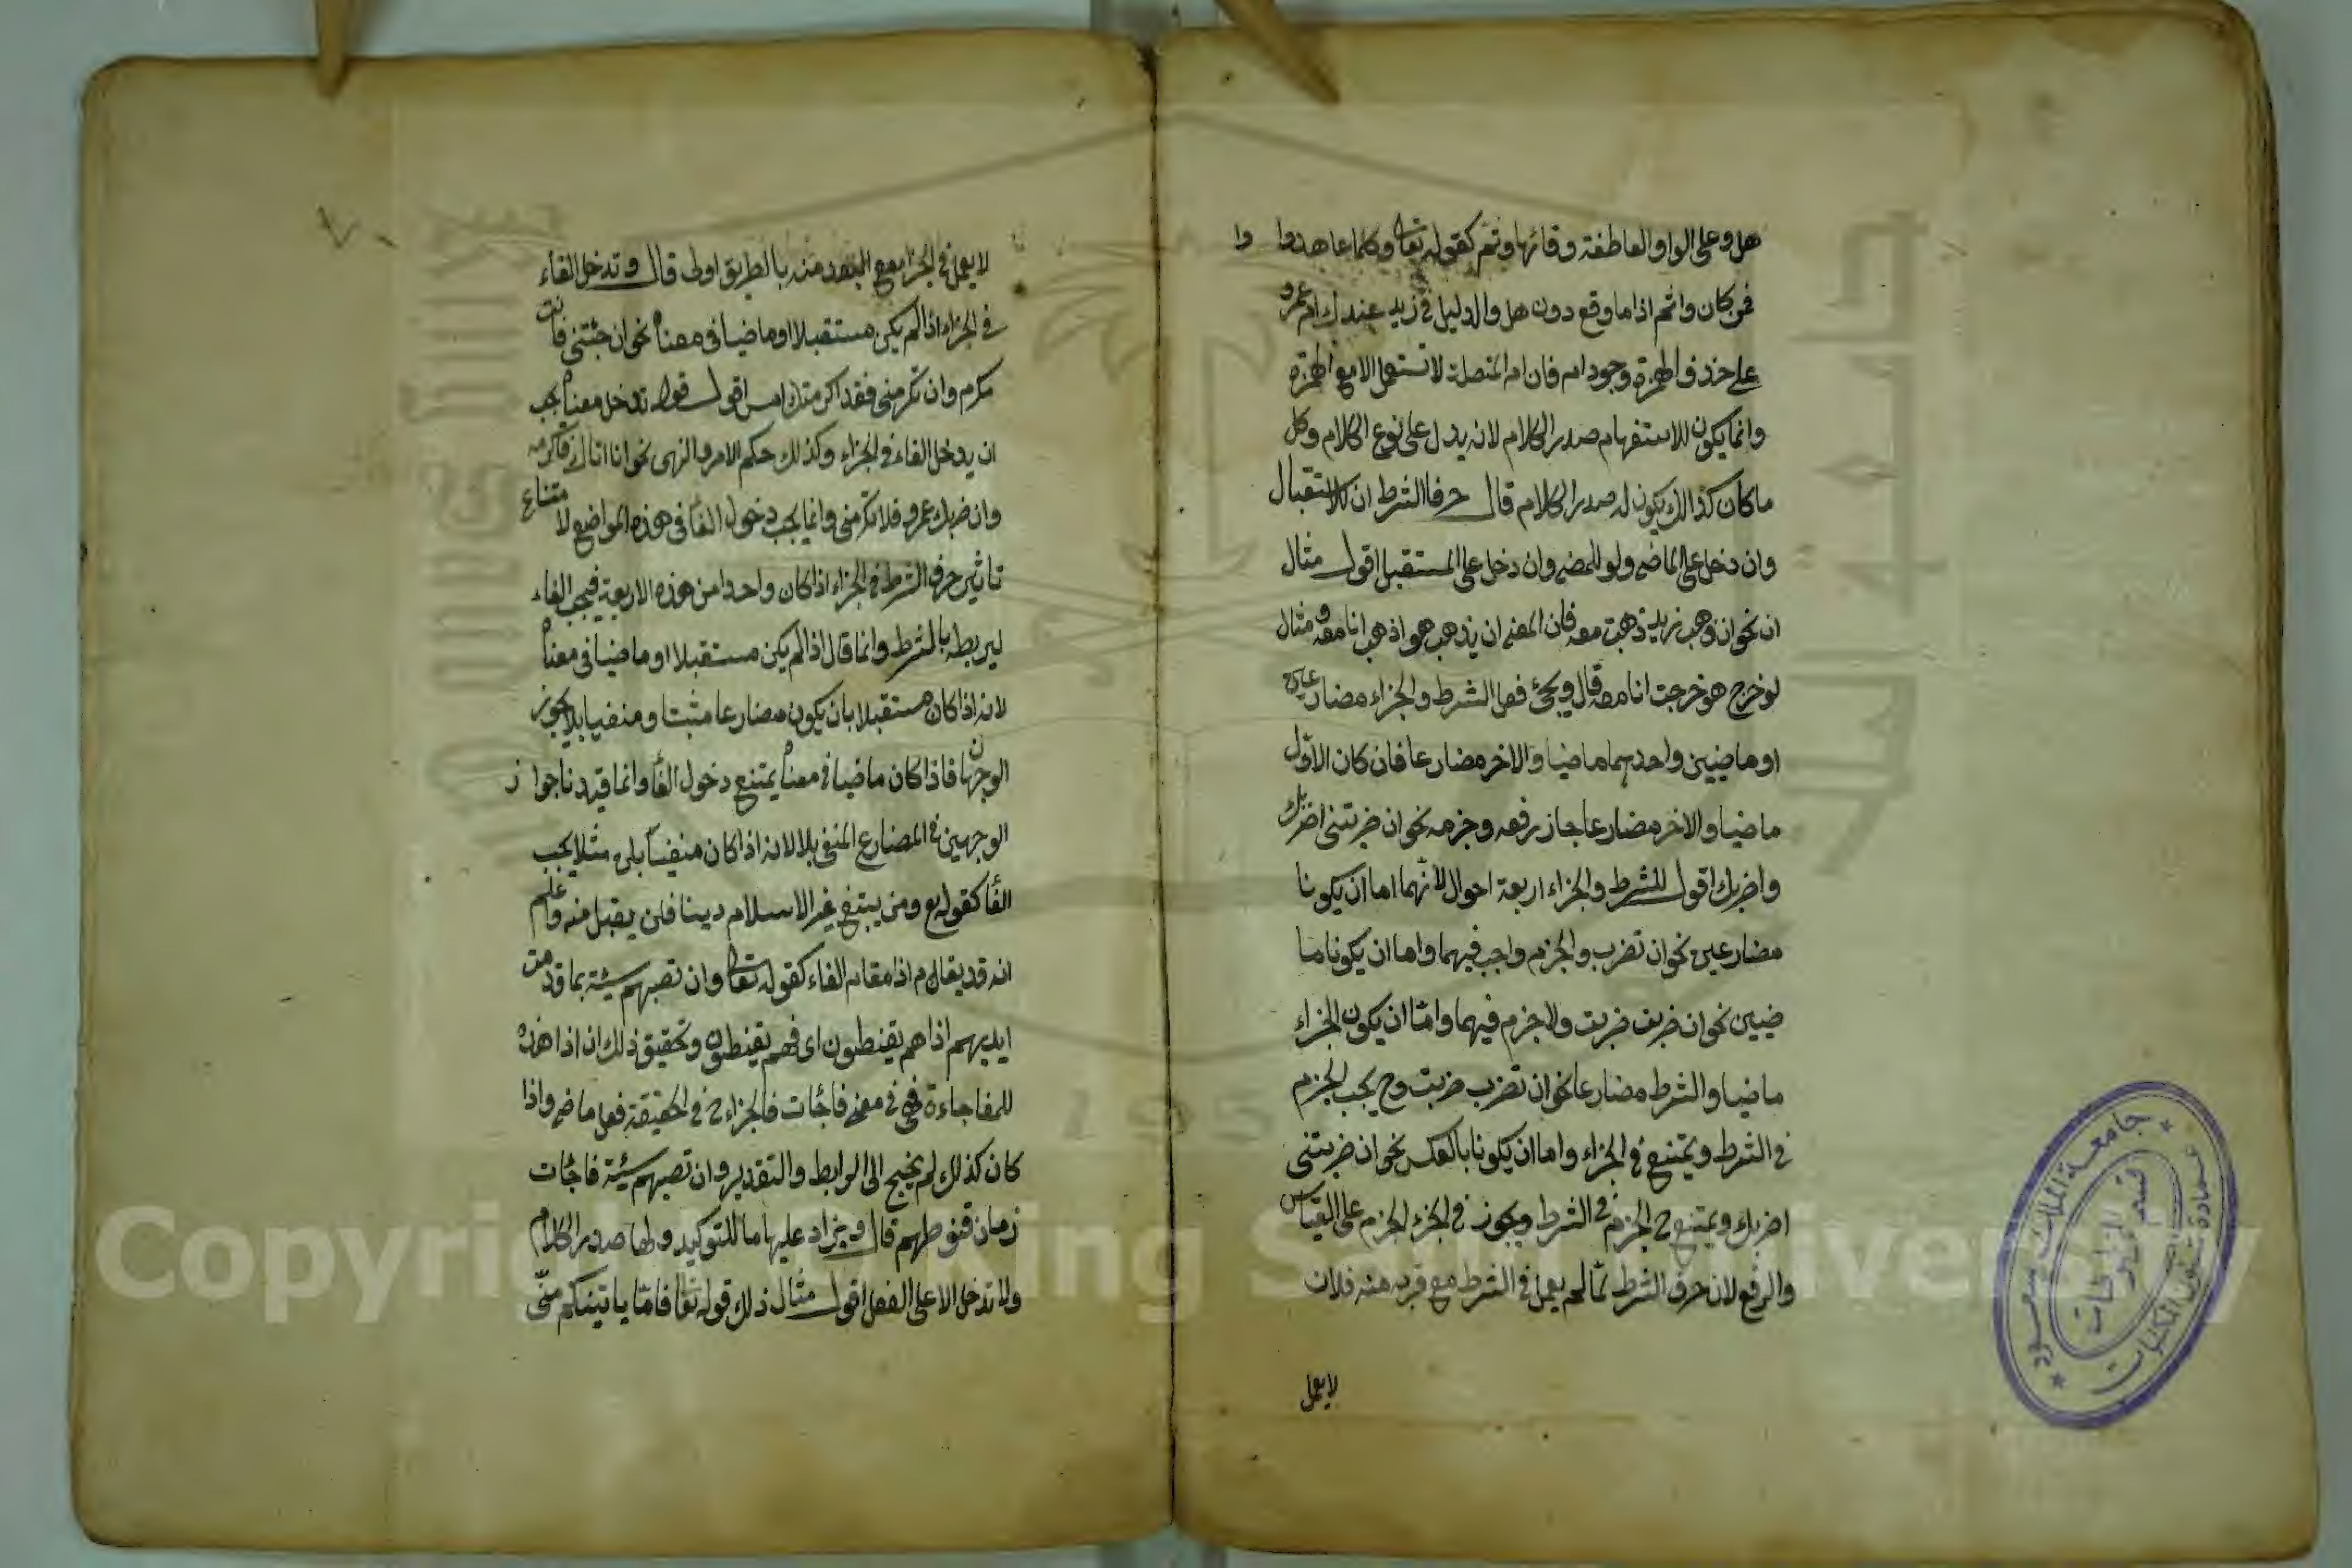 هل وعلى الواو العاطفة وفائها وثم كقوله تعا وكلما عاهدوا وا
فمن كان واثم اذا ما وقع دون هل والدليل في زيد عندك ام عمرو
على حذف الهمزة وجود ام فان ام المتصلة لا تستعمل الا مع الهمزة
وانما يكون للاستفهام صدر الكلام لانه يدل على نوع الكلام وكل
ما كان كذالك يكون له صدر الكلام قال حرفا الشرط ان للاستقبال
وان دخل على الماضي ولو للمضي وان دخل على المستقبل اقول مثال
ان نحو ان ذهب زيد ذهبت معه فان المعنى ان يذهب هو اذهب انا معه ومثال
لو خرج هو خرجت انا معه قال ويجئ فعل الشرط والجزاء مضارعين
او ماضيين واحدهما ماضيا والاخر مضارعا فان كان الاول
ماضيا والاخر مضارعا جاز رفعه وجزمه نحو ان ضربتنى اضربك
واضربك اقول للشرط والجزاء اربعة احوال لانهما اما ان يكونا
مضارعين نحو ان تضرب والجزم واجب فيهما واما ان يكونا ما
ضيين نحو ان ضربت ضربت ولا جزم فيهما واما ان يكون الجزاء
ماضيا والشرط مضارعا نحو ان تضرب ضربت وح يجب الجزم
في الشرط ويمتنع في الجزاء واما ان يكونا بالعكس نحو ان ضربتنى
اضربك ويمتنع ح الجزم في الشرط ويجوز في الجزء الجزم على القياس
والرفع لان حرف الشرط لما لم يعمل في الشرط مع قربه منه فلان
لا يعمل
لا يعمل في الجزا مع البعد منه بالطريق اولى قال وتدخل الفاء
في الجزاء اذا لم يكن مستقبلا او ماضيا في معناه نحو ان جئتنى فانت
مكرم وان تكرمنى فقد اكرمتك امس اقول قوله تدخل معناه يجب
ان يدخل الفاء في الجزاء وكذلك حكم الامر والنهى نحو ان اتاك فاكرمه
وان ضربك عمرو فلا تكرمنى وانما يجب دخول الفا في هذه المواضع لامتناع
تاثير حرف الشرط في الجزاء اذا كان واحدا من هذه الاربعة فيجب الفاء
ليربطه بالشرط وانما قال اذا لم يكن مستقبلا او ماضيا في معناه
لانه اذا كان مستقبلا بان يكون مضارعا مثبتا ومنفيا بلا يجوز
الوجهان فاذا كان ماضيا في معناه يمتنع دخول الفا وانما قيدنا جوا ز
الوجهين في المضارع المنفي بلا لانه اذا كان منفيا بلن مثلا يجب
الفا كقوله تع ومن يبتغ غير الاسلام دينا فلن يقبل منه واعلم
انه قد يقام اذا مقام الفاء كقوله تعا وان تصبهم سيئة بما قدمت
ايديهم اذا هم يقنطون اى فهم يقنطون وتحقيق ذلك ان اذا هذه
للمفاجاءة فهي في معنى فاجات فالجزاء ح في الحقيقة فعل ماضي واذا
كان كذلك لم يحتج الى الرابط والتقدير وان تصبهم سيئة فاجات
زمان قنوطهم قال ويزاد عليها ما للتوكيد ولها صدر الكلام
ولا تدخل الا على الفعل اقول مثال ذلك قوله تعا فاما ياتينكم منى
جامعة الملك سعود
عمادة شؤون المكتبات
قسم المخطوطات
Copyright © King Saud University